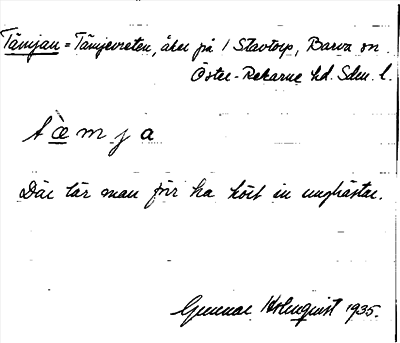 Tämjan = Tämjevreten, åker på 1 Stavtorp, Barva sn
Öster-Rekarne hd. Sdm. l.
tæ̀mja
Där lär man förr ha kört in unghästar.
Gunnar Holmquist 1935.